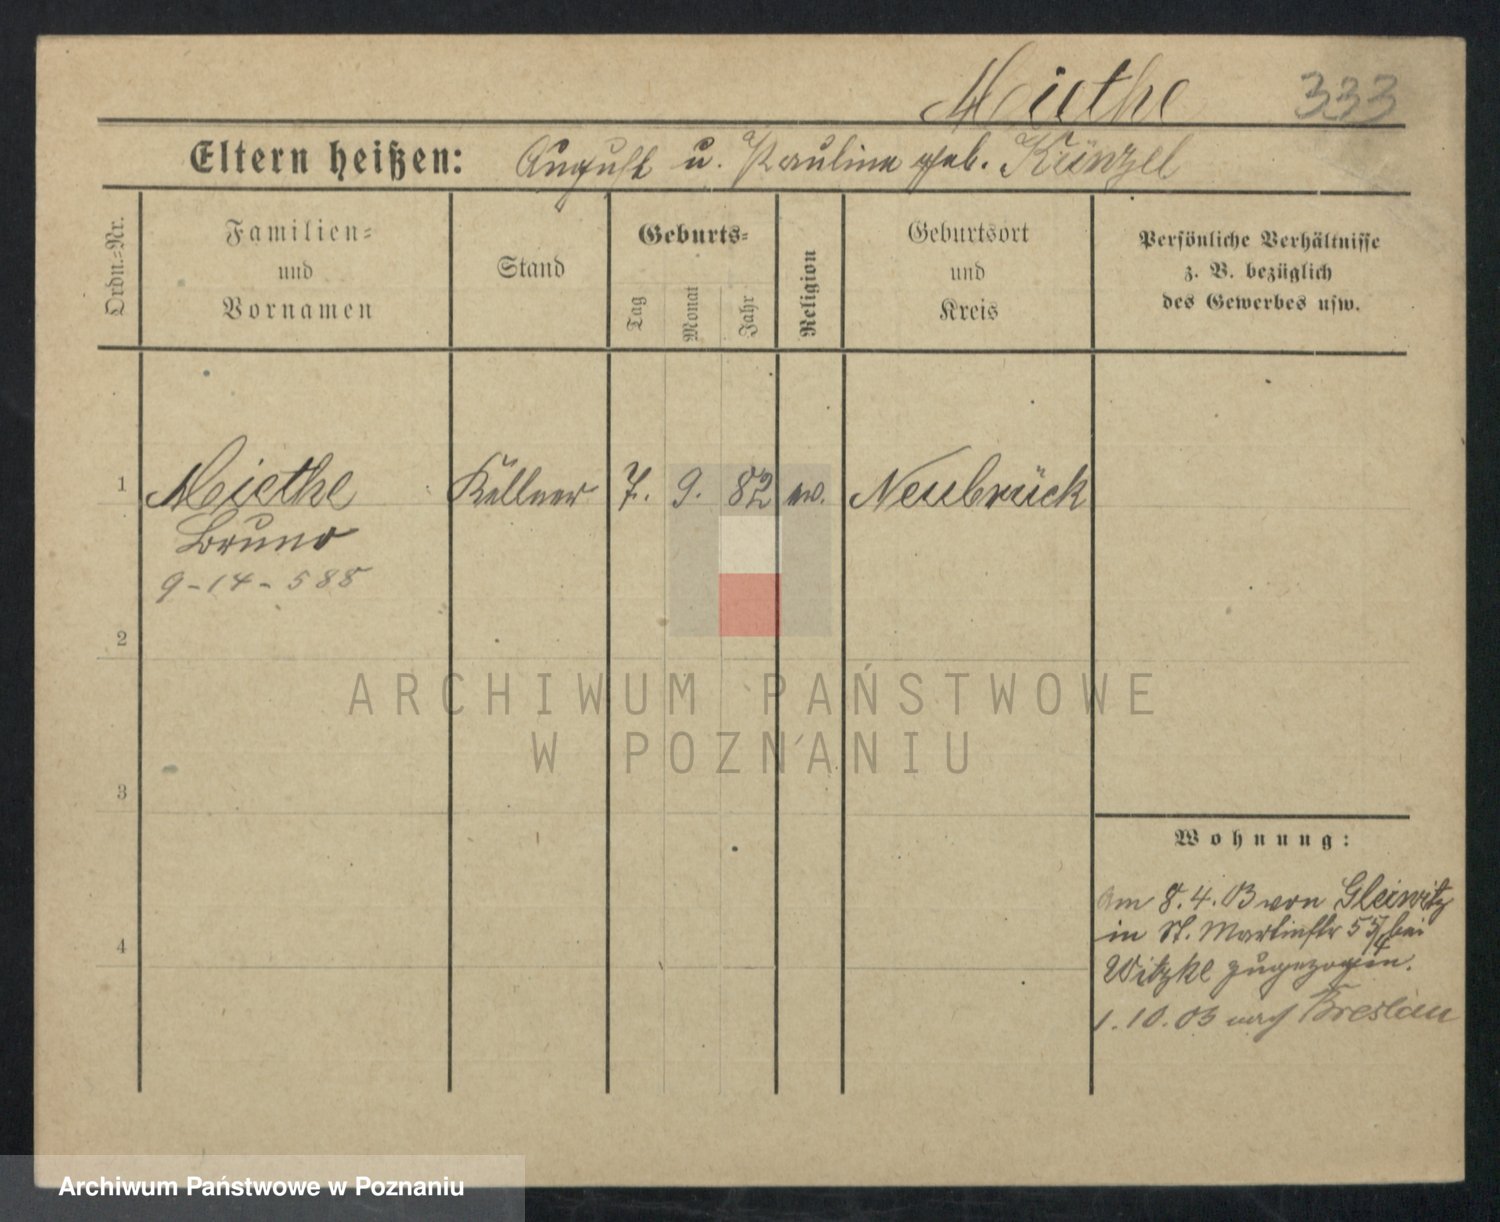 Miethe 333
Eltern heißen: August u. Pauline geb. Künzel
Ordn.-Nr.
Familien-
und
Vornamen
Stand
Geburts-
Tag
Monat
Jahr
Religion
Geburtsort
und
Kreis
Persönliche Verhältnisse
z. B. bezüglich
des Gewerbes usw.
1 Miethe Kellner 7. 9. 82 ev. Neubrück
Bruno
9-14-588
2
3
4
Wohnung:
Am 8.4.03 von Gleiwitz
in St. Martinstr 55/4 bei
Witzke zugezogen.
1.10.03 nach Breslau
ARCHIWUM PAŃSTWOWE
W POZNANIU
Archiwum Państwowe w Poznaniu